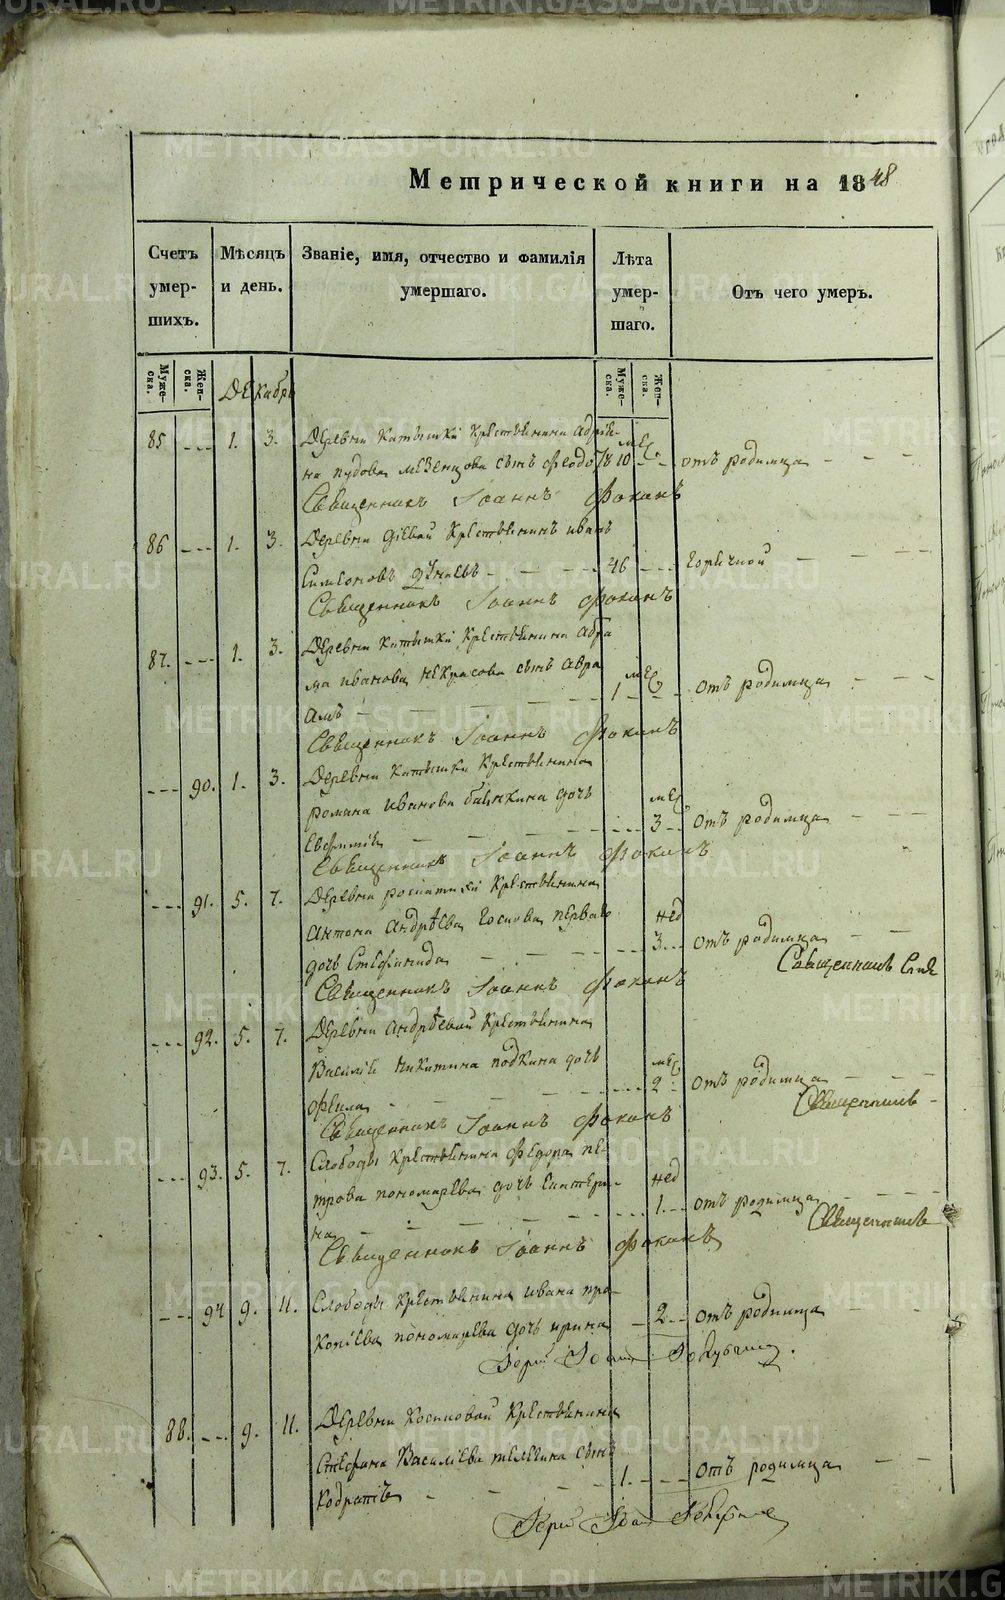 Метрической книги на 1848
Счетъ умер- шихъ.
Мѣсяцъ и день.
Званіе, имя, отчество и фамилія умершаго.
Лѣта умер- шаго.
Отъ чего умеръ.
Муже- ска.
Жен- ска.
Декабрь
Муже- ска.
Жен- ска.
85 1. 3. Деревни крестьянина
на пудова сынъ Феодоръ 10 мес. отъ родимца
Священникъ Іоаннъ Фокинъ
86 1. 3. Деревни крестьянинъ иванъ
Симеоновъ 46 горячкой
Священникъ Іоаннъ Фокинъ
87. 1. 3. Деревни крестьянина Абра
ма иванова некрасова сынъ Авра
амъ 1 мес отъ родимца
Священникъ Іоаннъ Фокинъ
90. 1. 3. Деревни крестьянина
романа иванова дочь
Евфимія 3 мес отъ родимца
Священникъ Іоаннъ Фокинъ
91. 5. 7. Деревни крестьянина
Антона Андрѣева
дочь Стефанида 3 нед отъ родимца
Священникъ
Священникъ Іоаннъ Фокинъ
92. 5. 7. Деревни Андрѣевой крестьянина
Василія Никитина дочь
Фекла 2 мес отъ родимца
Священникъ
Священникъ Іоаннъ Фокинъ
93. 5. 7. Слободы крестьянина Федора пе-
трова пономарева дочь Екатери-
на 1 нед отъ родимца
Священникъ
Священникъ Іоаннъ Фокинъ
94 9. 11. Слободы крестьянина ивана про-
копіева пономарева дочь ирина 2 отъ родимца
Іерей Іоаннъ
88. 9. 11. Деревни Косиковой крестьянина
Стефана Василіева телегина сынъ
Кодратъ 1. отъ родимца
Іерей Іоаннъ
METRIKI.GASO-URAL.RU